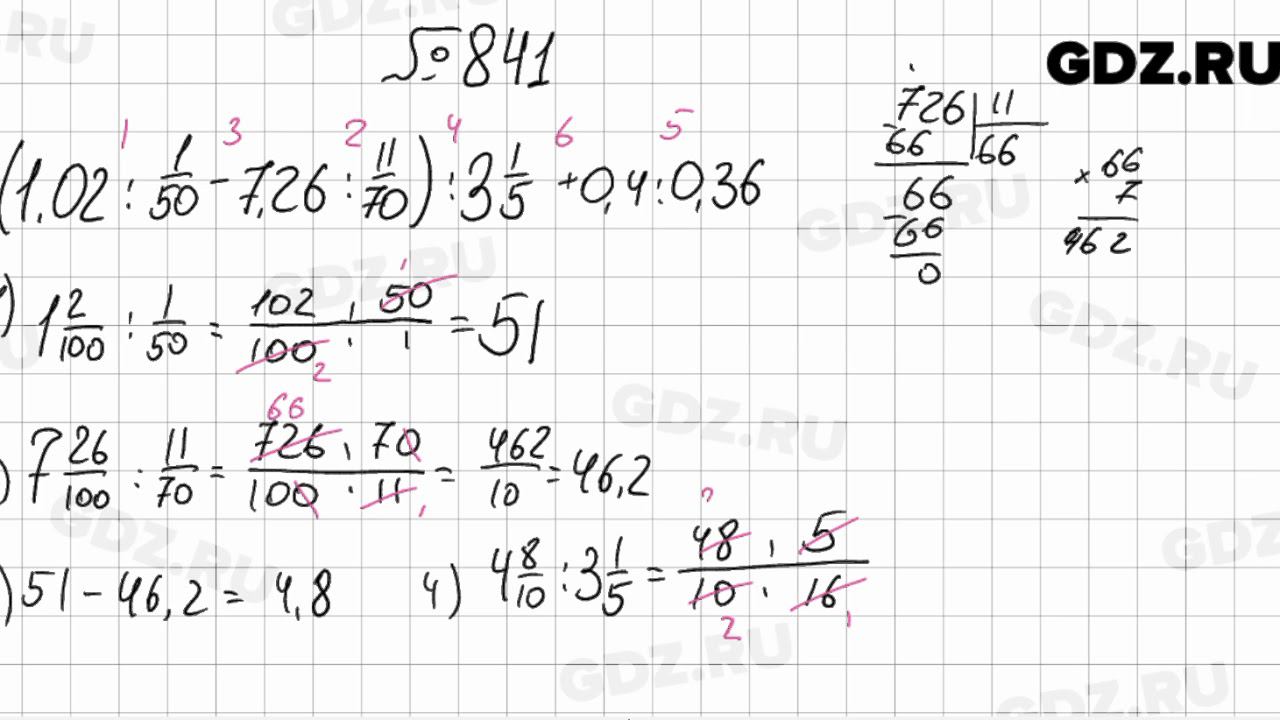 №841
GDZ.RU
1 3 2 4 6 5
(1,02 : 1/50 - 7,26 : 11/70) : 3 1/5 + 0,4 : 0,36
726 | 11
- 66 | 66
66
- 66
0
× 66
7
462
) 1 2/100 : 1/50 = 102 · 50 / 100 · 1 = 51
1
2
66
) 7 26/100 : 11/70 = 726 · 70 / 100 · 11 = 462/10 = 46,2
1
) 51 - 46,2 = 4,8
4) 4 8/10 : 3 1/5 = 48 · 5 / 10 · 16
2 1